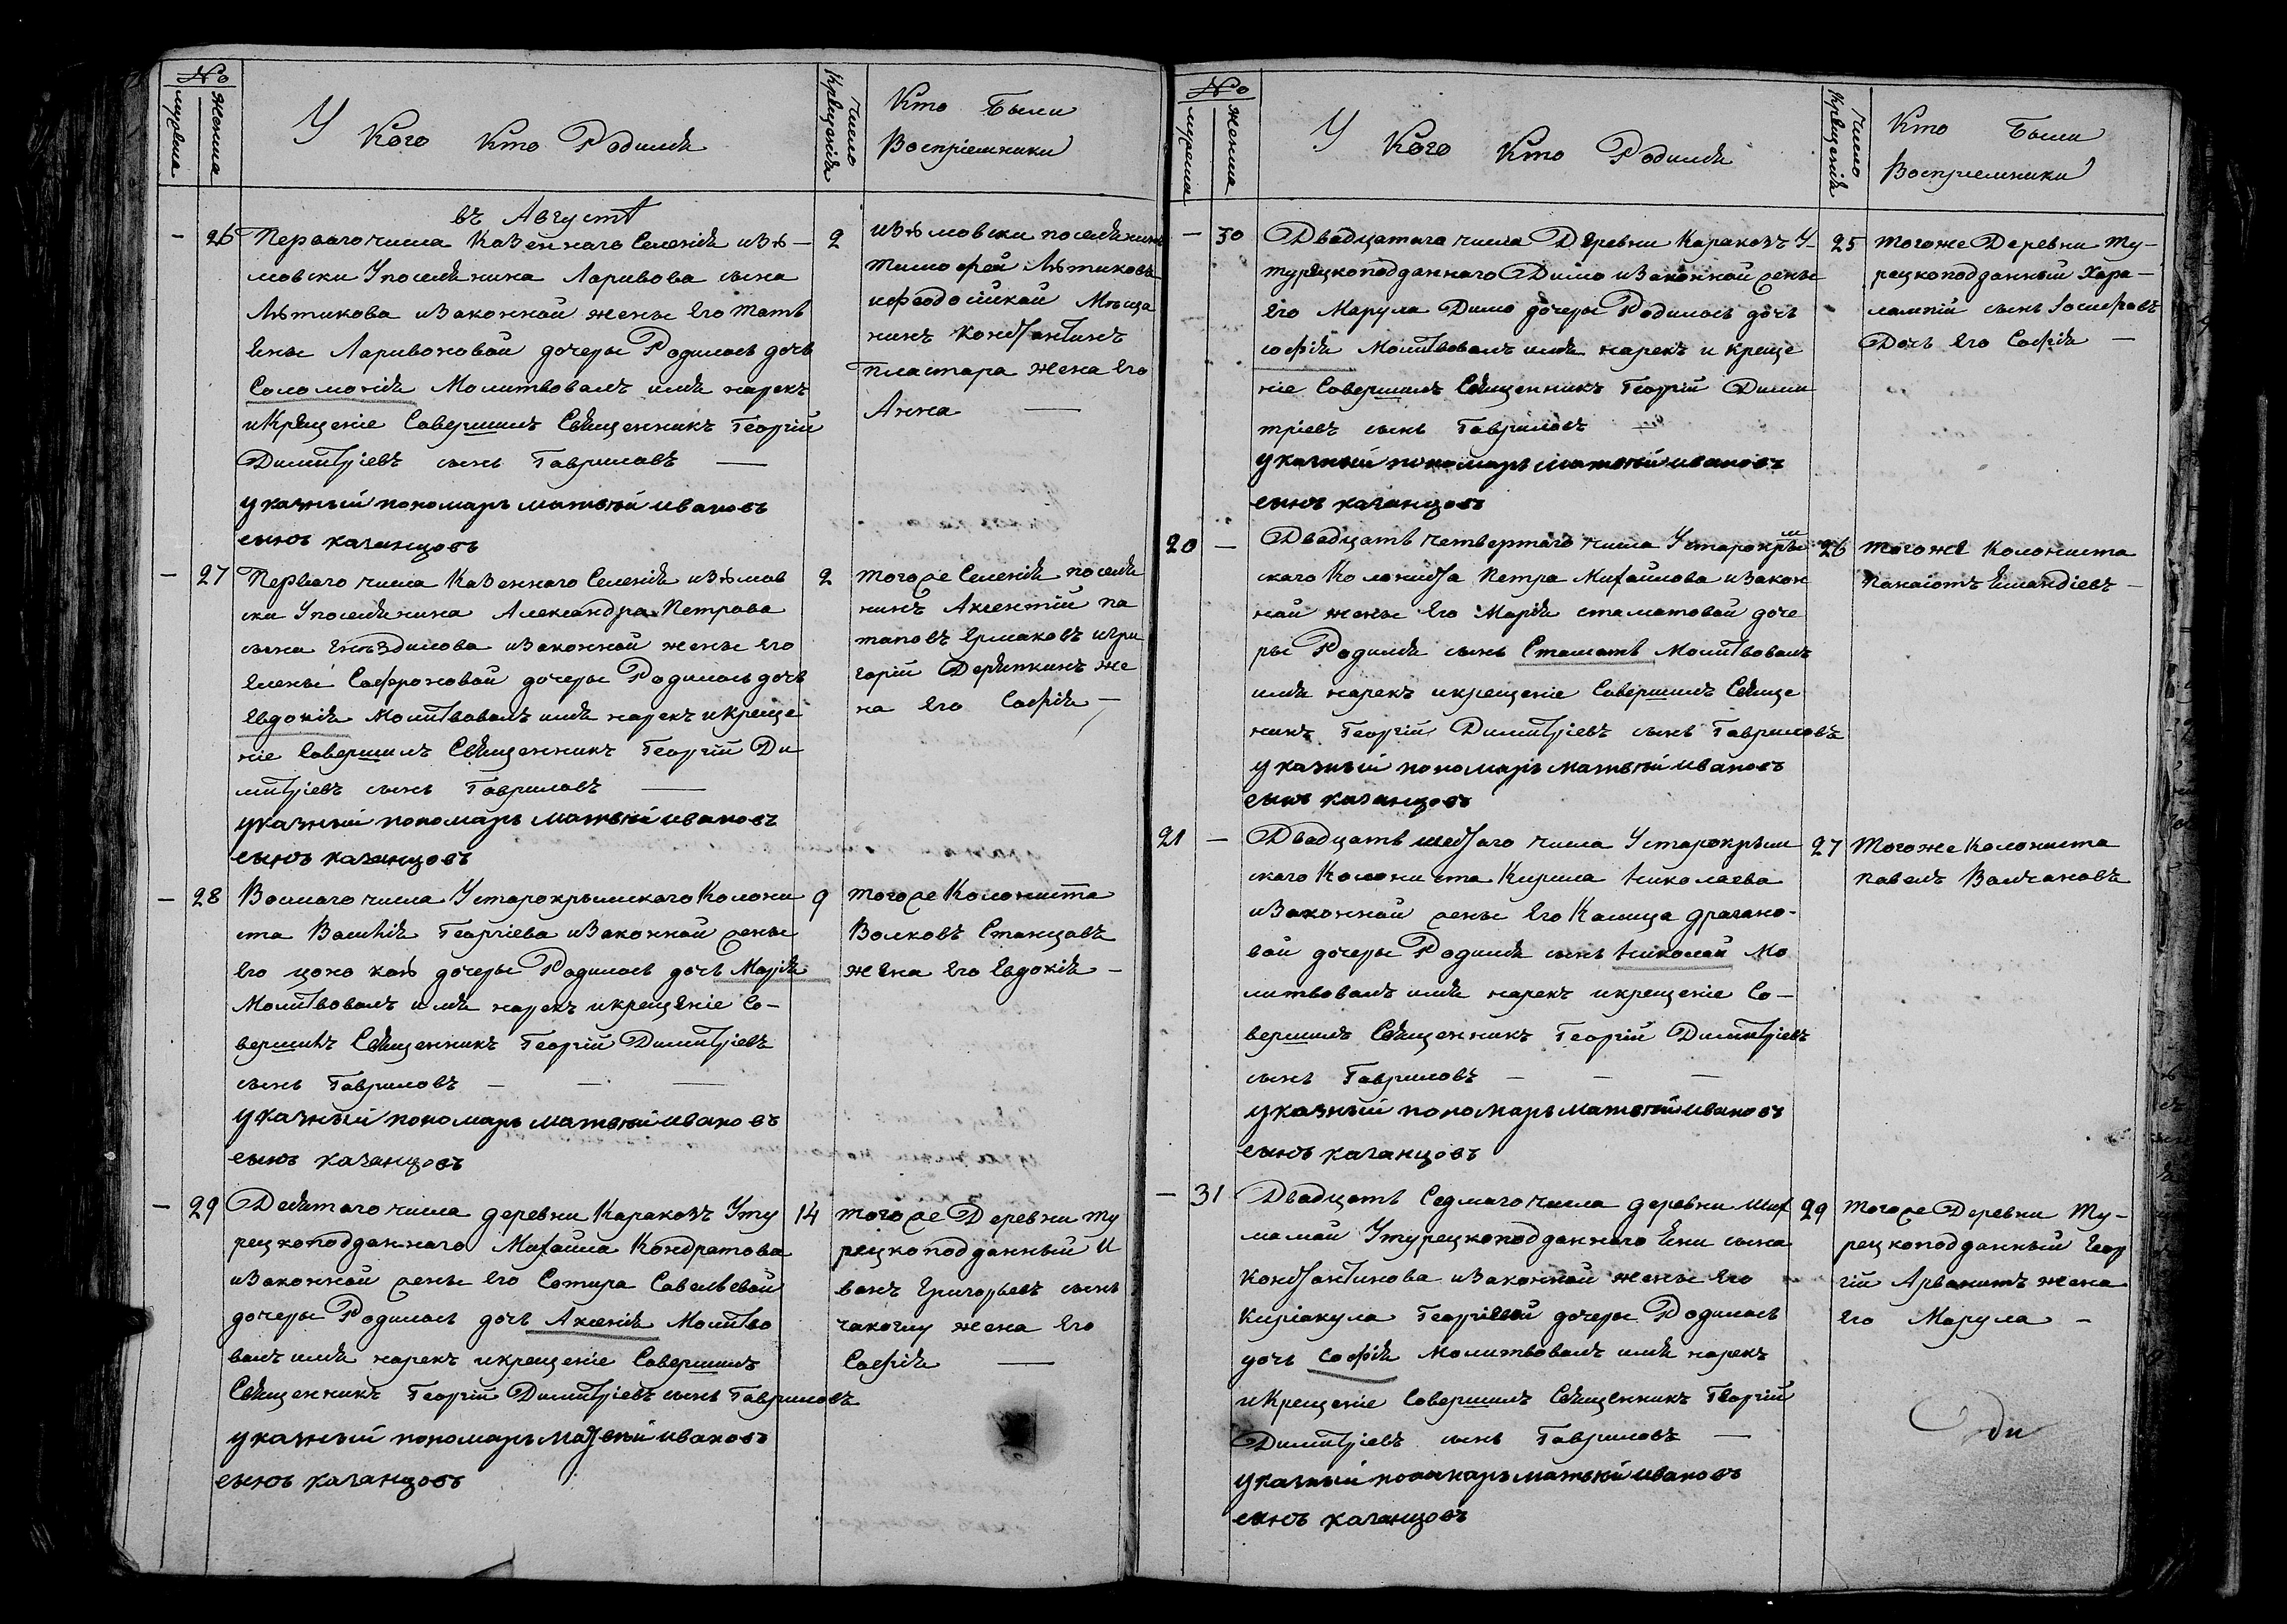 №
мужеска
женска
У Кого Кто Родился
Число Крещенія
Кто Были
Воспріемники
въ Августѣ
— 26 Перваго числа Казеннаго Селенія изю—
мовски У поселянина Ларивова сына
Лѣтикова изаконной жены его Татѣ
яны Ларивоновой дочеры Родилась дочь
Соломонія Молитвовалъ имя нарекъ
икрещеніе Совершилъ Священникъ Георгій
Димитріевъ сынъ Гавриловъ —
указный пономарь матвѣй ивановъ
сынъ каганцовъ
2 изюмовски поселянинъ
Тимофей Лѣтиковъ
ифеодосійской Мѣща
нинъ Константинъ
пластара жена его
Анна —
— 27 Перваго числа Казеннаго Селенія изюмов
ски У поселянина Александра Петрова
сына Гнѣздилова изаконной жены его
Елены Сафроновой дочеры Родилась дочь
Евдокія Молитвовалъ имя нарекъ икреще
ніе Совершилъ Священникъ Георгій Ди
митріевъ сынъ Гавриловъ —
указный пономарь матвѣй ивановъ
сынъ каганцовъ
2 тогоже Селенія поселя
нинъ Аксентій па
таповъ Ермаковъ игри
горій Деряпкинъ же
на его Софія —
— 28 Восмаго числа Устарокрымскаго Колони
ста Василія Георгіева изаконной жены
его цоно каѣ дочеры Родилась дочь Марія
Молитвовалъ имя нарекъ икрещеніе Со—
вершилъ Священникъ Георгій Димитріевъ
сынъ Гавриловъ — — —
указный пономарь матвѣй ивановъ
сынъ каганцовъ
9 тогоже Колониста
Волковъ Станцовъ
жена его Евдокія —
— 29 Десятаго числа деревни Каракозъ Уту
рецкоподданнаго Михайла Кондратова
изаконной жены его Сотира Савельевой
дочеры Родилась дочь Аксенія Молитво
валъ имя нарекъ икрещеніе Совершилъ
Священникъ Георгій Димитріевъ сынъ Гавриловъ
указный пономарь матвѣй ивановъ
сынъ каганцовъ
14 тогоже Деревни ту
рецкоподданный И
ванъ Григорьевъ сынъ
чакочлу жена его
Софія —
№
мужеска
женска
У Кого Кто Родился
Число Крещенія
Кто Были
Воспріемники
— 30 Двадцатаго числа Деревни Каракозъ У—
турецкоподданнаго Димо изаконной жены
его Марула Димо дочеры Родилась дочь
софія Молитвовалъ имя нарекъ и креще
ніе Совершилъ Священникъ Георгій Дими
тріевъ сынъ Гавриловъ —
указный пономарь матвѣй ивановъ
сынъ каганцовъ
25 тогоже Деревни ту—
рецкоподданный Хара—
лампій сынъ Іосифовъ
Дочь его Софія —
20 — Двадцать четвертаго числа Устарокрым
скаго Колониста Петра Михайлова изакон
ной жены его Марія стаматовой доче
ры Родился сынъ Стаматъ Молитвовалъ
имя нарекъ икрещеніе Совершилъ Свяще
никъ Георгій Димитріевъ сынъ Гавриловъ
указный пономарь матвѣй ивановъ
сынъ каганцовъ
26 тогоже Колониста
панаіотъ Емандіевъ —
21 — Двадцать шестаго числа Устарокрым
скаго Колониста Кирила николаева
изаконной жены его Калица драгано-
вой дочеры Родился сынъ николай Мо
литвовалъ имя нарекъ икрещеніе Со—
вершилъ Священникъ Георгій Димитріевъ
сынъ Гавриловъ — — —
указный пономарь матвѣй ивановъ
сынъ каганцовъ
27 Тогоже Колониста
павелъ Волчановъ
— 31 Двадцать Седмаго числа деревни Ших
мамай Утурецкоподданнаго Яни сына
Константинова изаконной жены его
Киріакула Георгіевой дочеры Родилась
дочь Софія Молитвовалъ имя нарекъ
икрещеніе Совершилъ Священникъ Георгій
Димитріевъ сынъ Гавриловъ —
указный пономарь матвѣй ивановъ
сынъ каганцовъ
29 тогоже Деревни Ту—
рецкоподданный Геор
гій Арванитъ жена
его Марула —